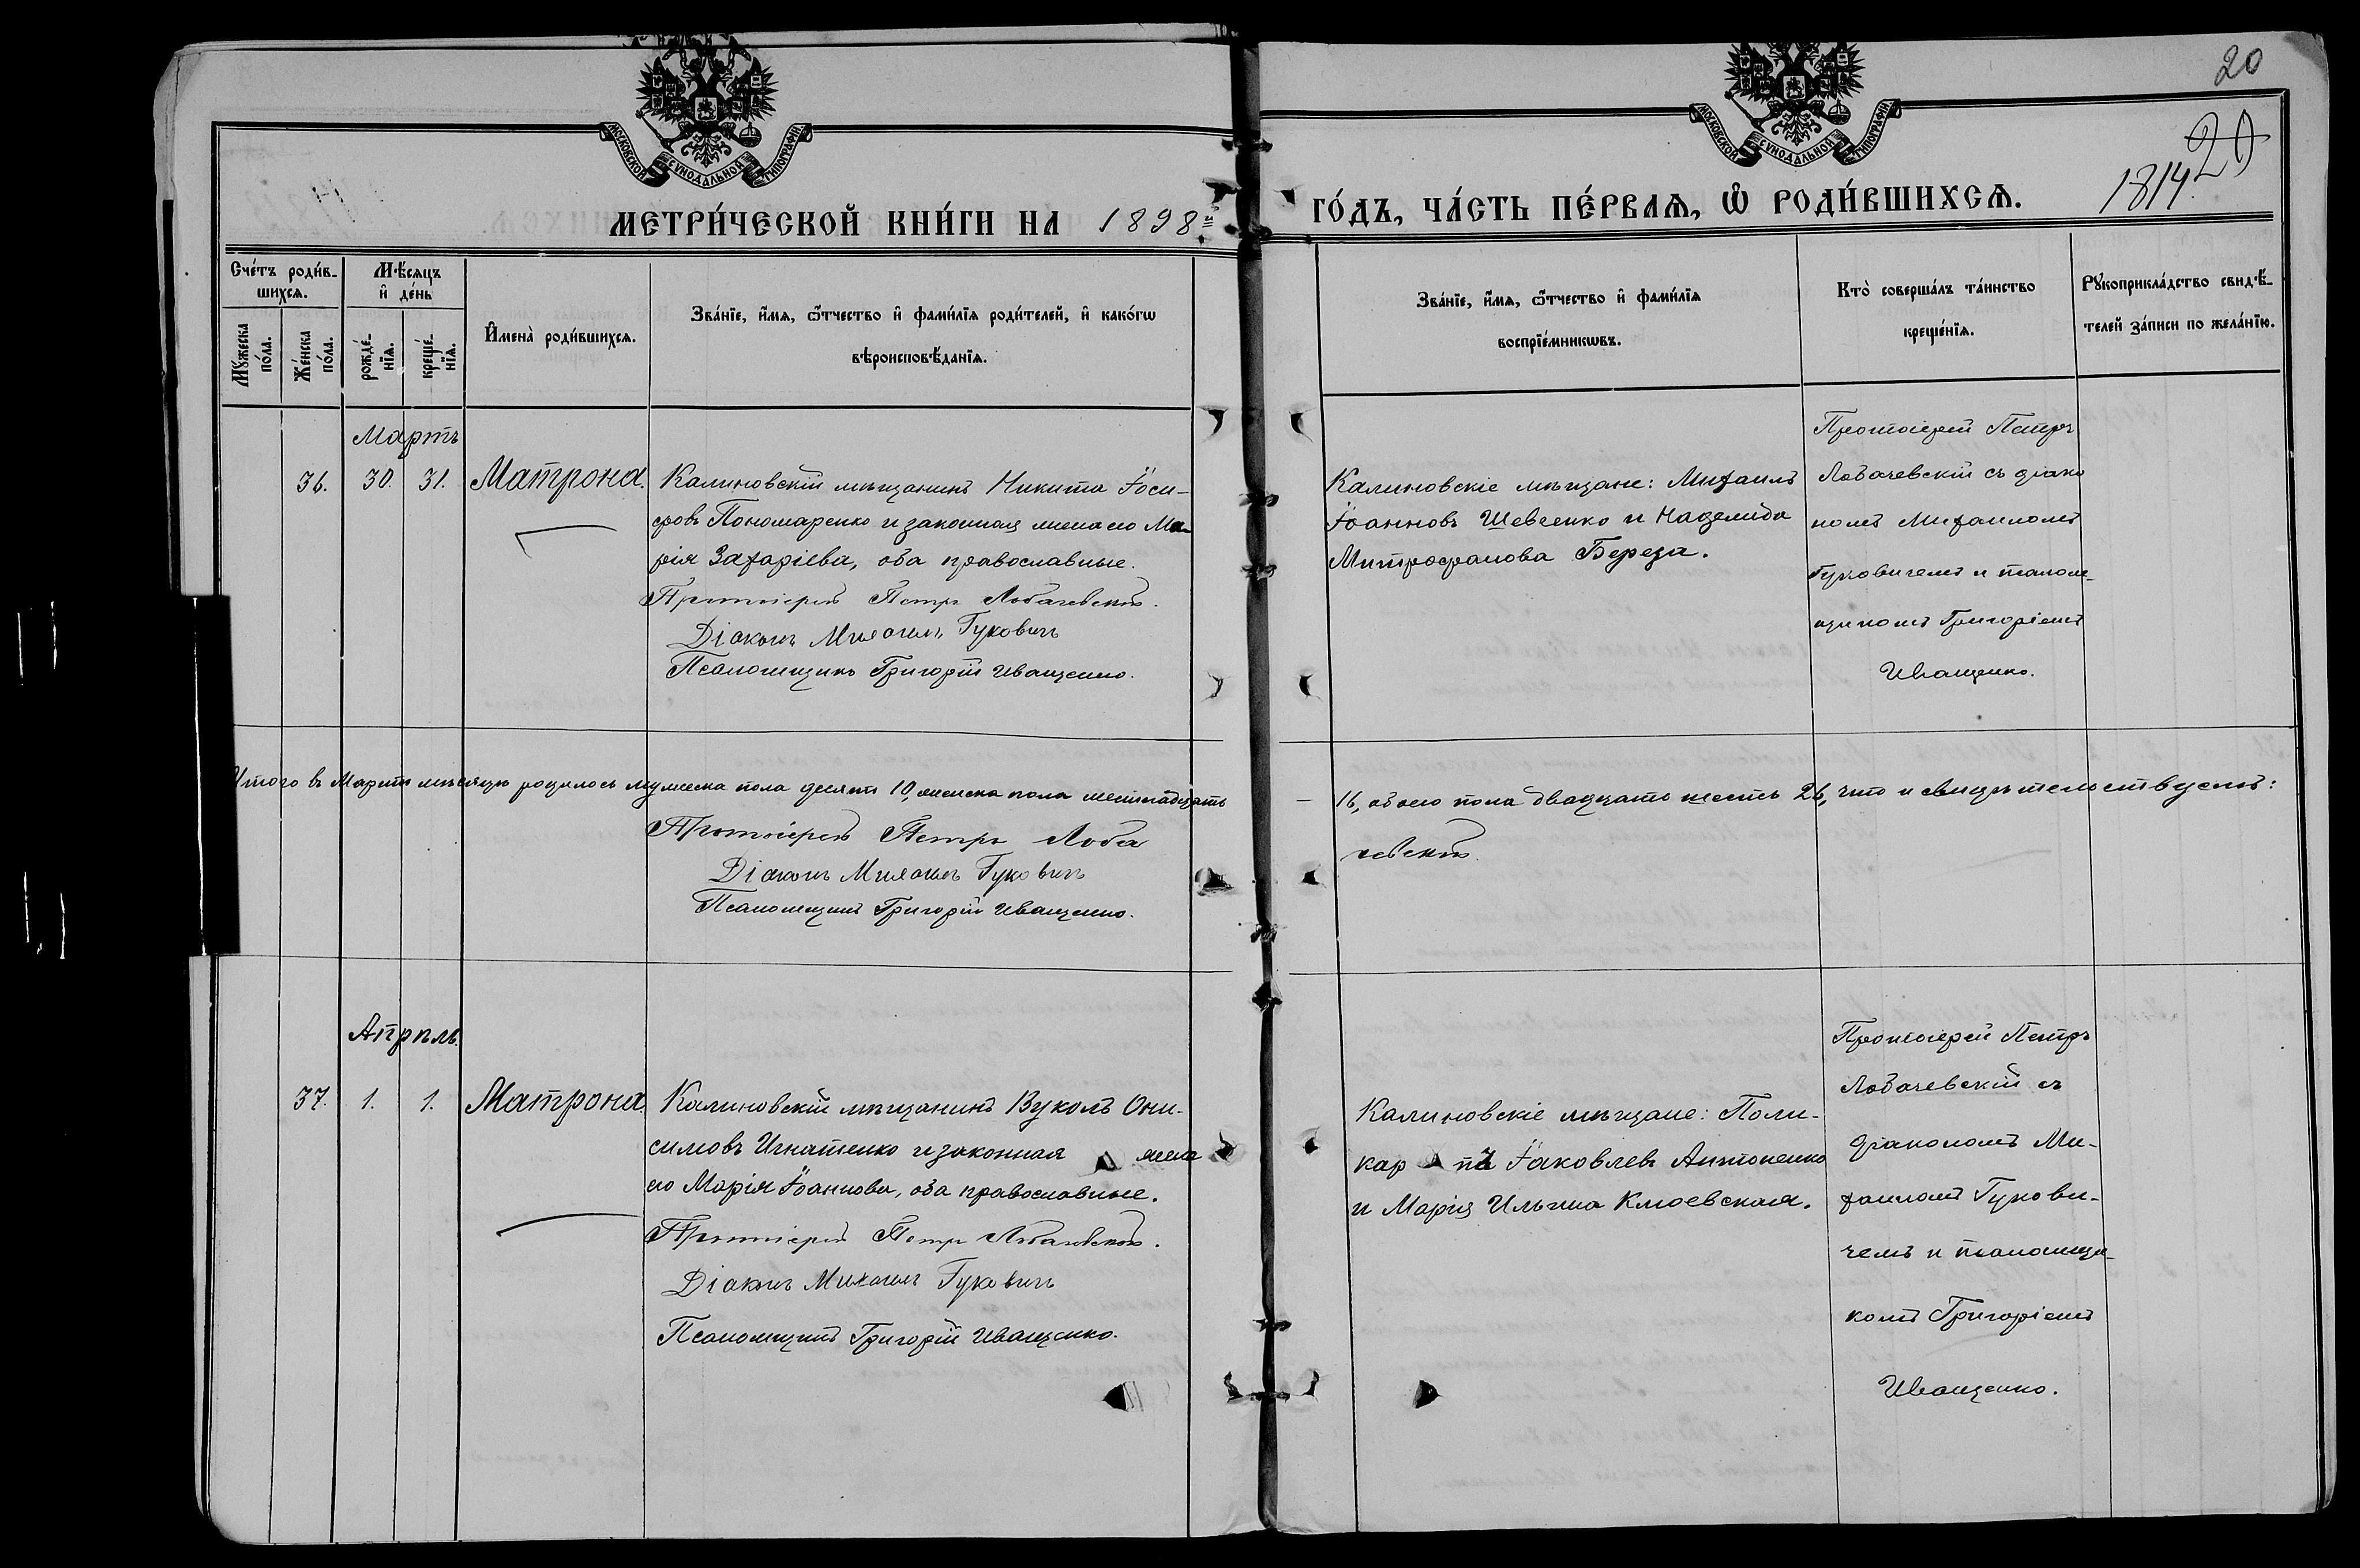 20
МОСКОВСКОЙ СѴНОДАЛЬНОЙ ТИПОГРАФІИ
МОСКОВСКОЙ СѴНОДАЛЬНОЙ ТИПОГРАФІИ
1814.
20
МЕТРИ́ЧЕСКОЙ КНИ́ГИ НА 1898й ГО́ДЪ, ЧА́СТЬ ПЕ́РВАѦ, Ѡ҆ РОДИ́ВШИХСѦ.
Сче́тъ роди́в-
шихсѧ.
Мꙋ́жеска по́ла.
Же́нска по́ла.
М҃ѣсѧцъ
и҆ де́нь
рожде́-
нїѧ.
креще́-
нїѧ.
И҆мена̀ роди́вшихсѧ.
Зва́нїе, и҆́мѧ, ѻ҆́тчество и҆ фами́лїѧ роди́телей, и҆ како́гѡ
вѣроисповѣ́данїѧ.
Зва́нїе, и҆́мѧ, ѻ҆́тчество и҆ фами́лїѧ
воспрїе́мникѡвъ.
Кто̀ соверша́лъ та́инство
креще́нїѧ.
Рꙋкоприкла́дство свидѣ́-
телей за́писи по жела́нїю.
Мартъ
36. 30. 31. Матрона.
Калиновскій мѣщанинъ Никита Іоси-
фовъ Пономаренко и законная жена его Ма-
рія Захаріева, оба православные.
Протоіерей Петръ Лобачевскій.
Діаконъ Михаилъ Гуковичъ
Псаломщикъ Григорій Иващенко.
Калиновскіе мѣщане: Михаилъ
Іоанновъ Шевченко и Надежда
Митрофанова Береза.
Протоіерей Петръ
Лобачевскій съ діако
номъ Михаиломъ
Гуковичемъ и псалом-
щикомъ Григоріемъ
Иващенко.
Итого въ Мартѣ мѣсяцѣ родилось мужеска пола десять 10, женска пола шестнадцать
— 16, обоего пола двадцать шесть 26, что и свидѣтельствуемъ:
Протоіерей Петръ Лоба
чевскій.
Діаконъ Михаилъ Гуковичъ
Псаломщикъ Григорій Иващенко.
Апрѣль.
37. 1. 1. Матрона.
Калиновскій мѣщанинъ Вуколъ Они-
симовъ Игнатенко и законная жена
его Марія Іоаннова, оба православные.
Протоіерей Петръ Лобачевскій.
Діаконъ Михаилъ Гуковичъ
Псаломщикъ Григорій Иващенко.
Калиновскіе мѣщане: Поли-
карпъ Іаковлевъ Антоненко
и Марія Ильина Клюевская.
Протоіерей Петръ
Лобачевскій съ
діакономъ Ми-
хаиломъ Гукови-
чемъ и псаломщи-
комъ Григоріемъ
Иващенко.